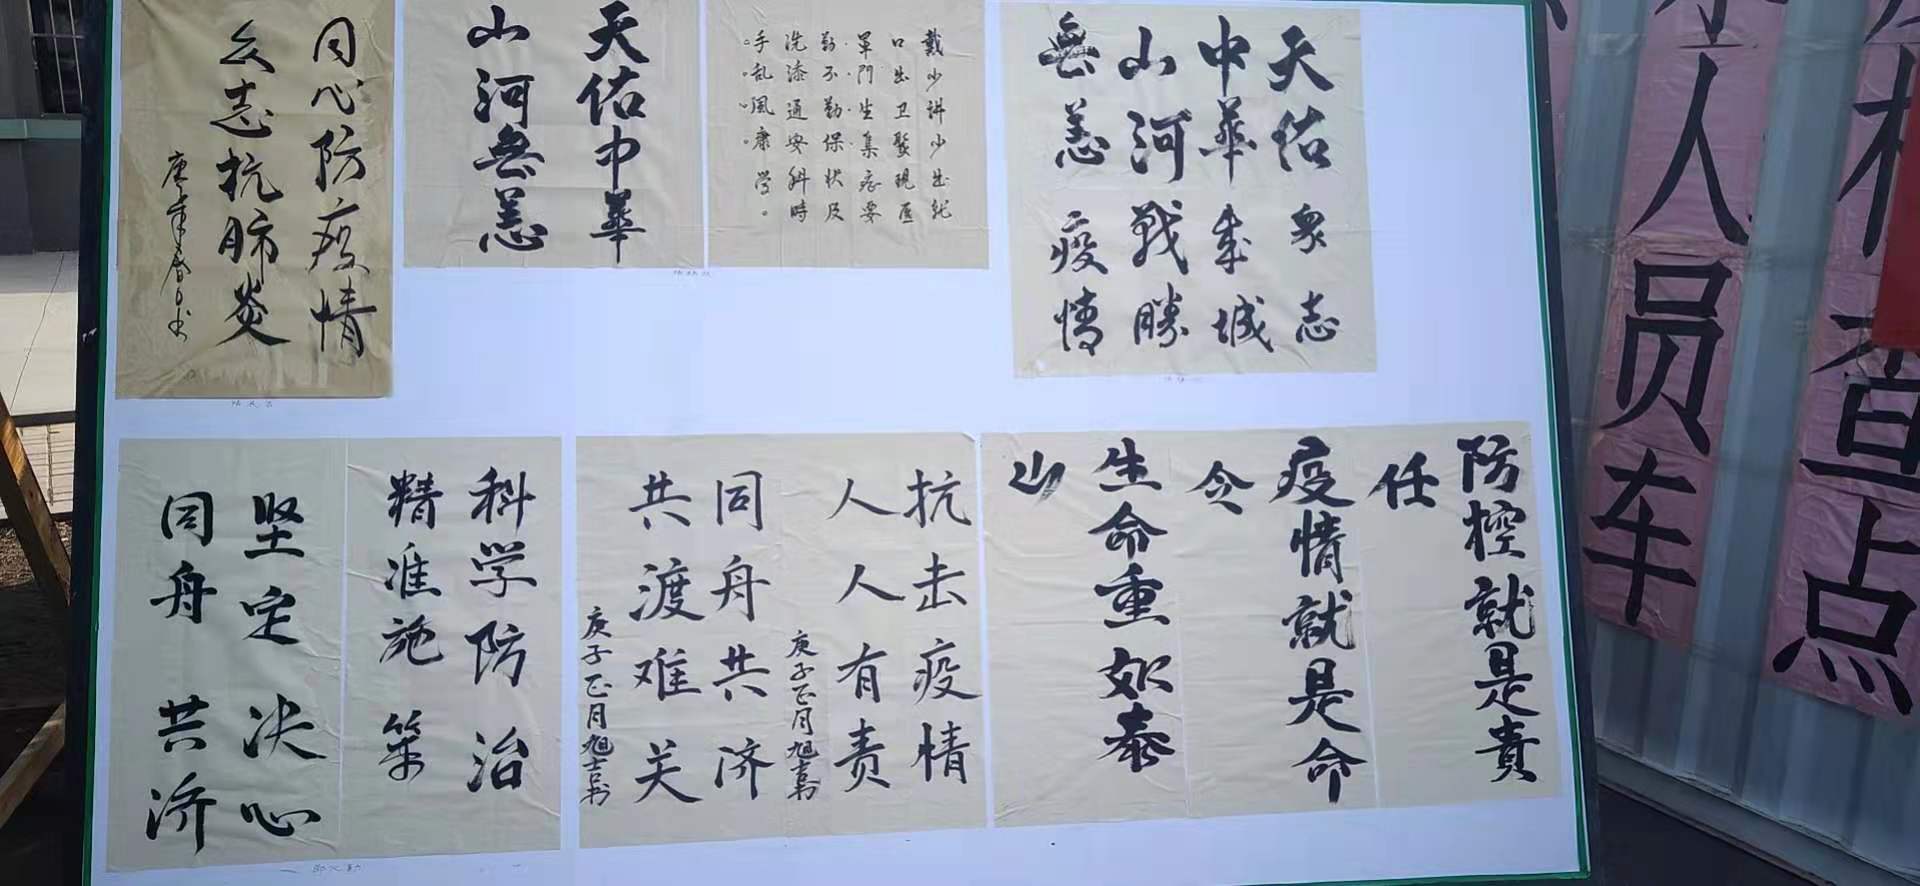 同心防疫情
众志抗肺炎
天佑中華
山河無恙
戴少讲少出就
口出卫聚现医
罩门生集症要
勤不勤保状及
洗漆通安科時
手乱風康学。
天佑衆志
中華成城
山河戰勝
無恙疫情
科学防治
精准施策
坚定决心
同舟共济
抗击疫情
人人有责
庚子正月旭吉书
同舟共济
共渡难关
庚子正月旭吉书
防控就是責
任
疫情就是命
令
生命重如泰
山
人员车
查点